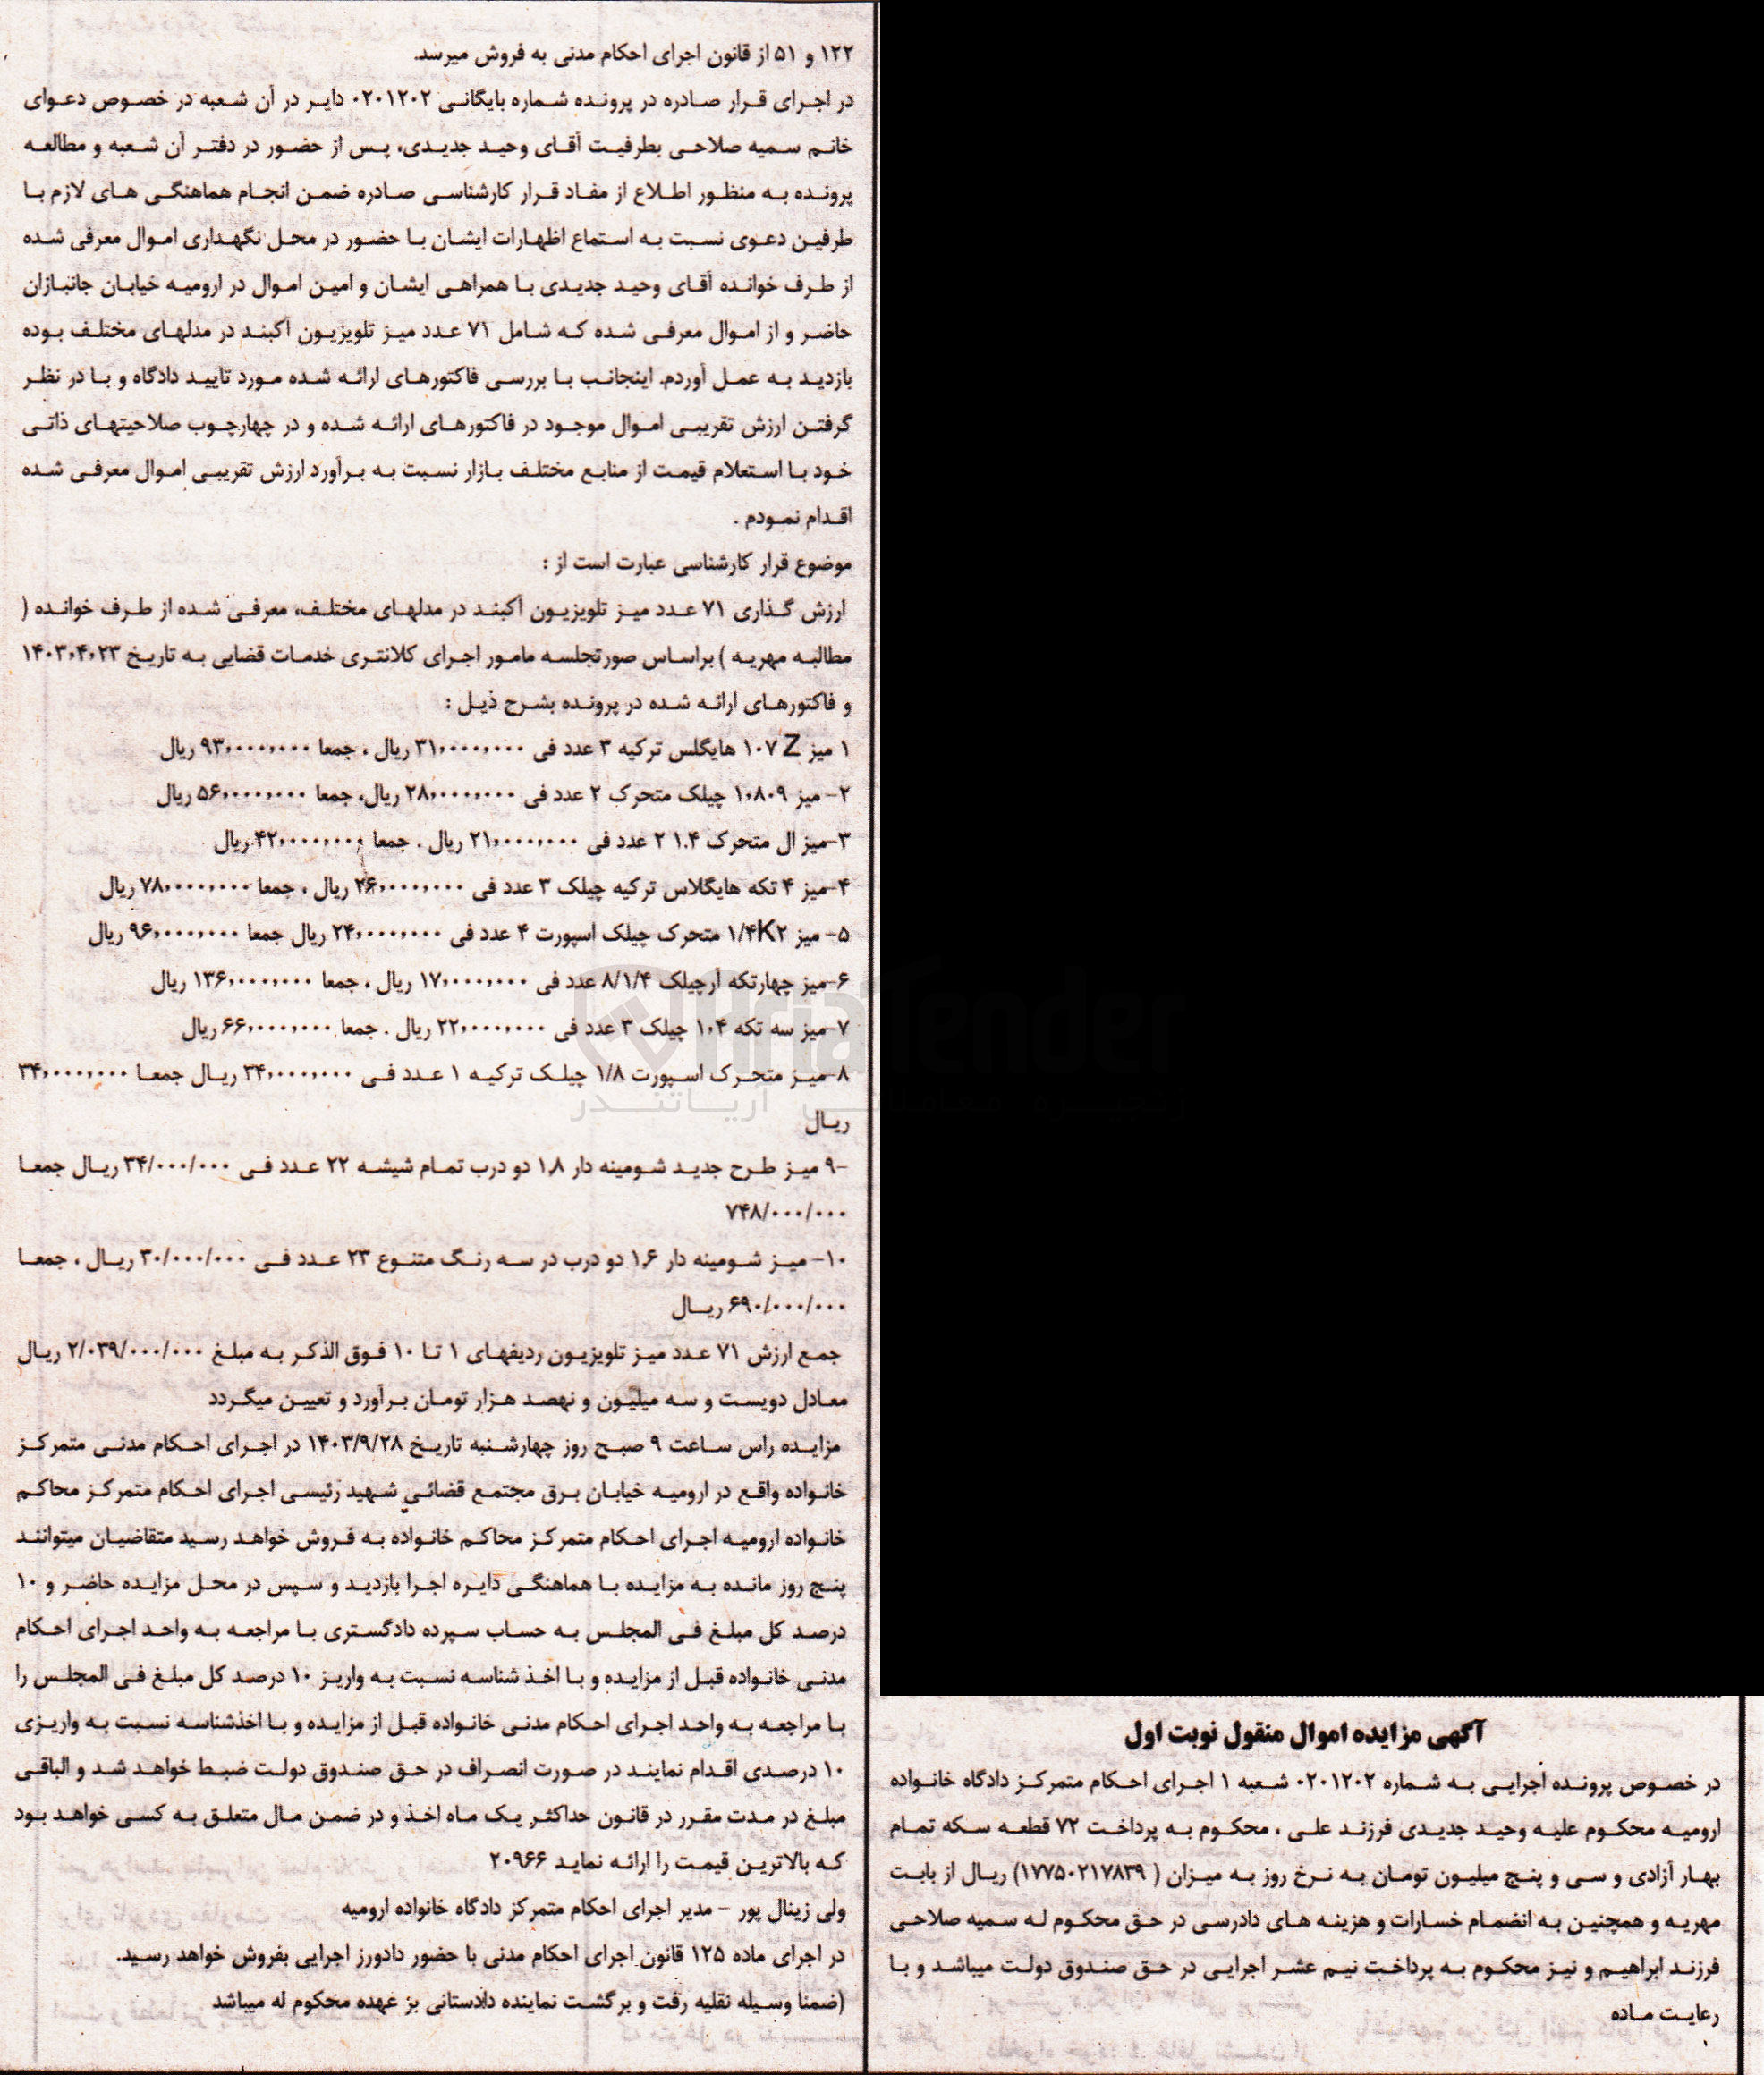 آگهی مزایده اموال منقول نوبت اول
در خصوص پرونده اجرایی به شماره ۰۲۰۱۲۰۲ شعبه ۱ اجرای احکام متمرکز دادگاه خانواده
ارومیه محکوم علیه وحید جدیدی فرزند علی ، محکوم به پرداخت ۷۲ قطعه سکه تمام
بهار آزادی و سی و پنج میلیون تومان به نرخ روز به میزان ( ۱۷۷۵۰۲۱۷۸۳۹) ریال از بابت
مهریه و همچنین به انضمام خسارات و هزینه های دادرسی در حق محکوم له سمیه صلاحی
فرزند ابراهیم و نیز محکوم به پرداخت نیم عشر اجرایی در حق صندوق دولت میباشد و با
رعایت ماده
۱۲۲ و ۵۱ از قانون اجرای احکام مدنی به فروش میرسد.
در اجرای قرار صادره در پرونده شماره بایگانی ۰۲۰۱۲۰۲ دایر در آن شعبه در خصوص دعوای
خانم سمیه صلاحی بطرفیت آقای وحید جدیدی، پس از حضور در دفتر آن شعبه و مطالعه
پرونده به منظور اطلاع از مفاد قرار کارشناسی صادره ضمن انجام هماهنگی های لازم با
طرفین دعوی نسبت به استماع اظهارات ایشان با حضور در محل نگهداری اموال معرفی شده
از طرف خوانده آقای وحید جدیدی با همراهی ایشان و امین اموال در ارومیه خیابان جانبازان
حاضر و از اموال معرفی شده که شامل ۷۱ عدد میز تلویزیون آکبند در مدلهای مختلف بوده
بازدید به عمل آوردم. اینجانب با بررسی فاکتورهای ارائه شده مورد تایید دادگاه و با در نظر
گرفتن ارزش تقریبی اموال موجود در فاکتورهای ارائه شده و در چهارچوب صلاحیتهای ذاتی
خود با استعلام قیمت از منابع مختلف بازار نسبت به برآورد ارزش تقریبی اموال معرفی شده
اقدام نمودم .
موضوع قرار کارشناسی عبارت است از :
ارزش گذاری ۷۱ عدد میز تلویزیون آکبند در مدلهای مختلف، معرفی شده از طرف خوانده (
مطالبه مهریه ) براساس صورتجلسه مامور اجرای کلانتری خدمات قضایی به تاریخ ۱۴۰۳٫۴٫۲۳
و فاکتورهای ارائه شده در پرونده بشرح ذیل :
۱ میز Z ۱۰۷ هایگلس ترکیه ۳ عدد فی ۳۱٫۰۰۰٫۰۰۰ ریال ، جمعا ۹۳٫۰۰۰٫۰۰۰ ریال
۲- میز ۱٫۸۰۹ چیلک متحرک ۲ عدد فی ۲۸٫۰۰۰٫۰۰۰ ریال، جمعا ۵۶٫۰۰۰٫۰۰۰ ریال
۳-میز ال متحرک ۱.۴ ۲ عدد فی ۲۱٫۰۰۰٫۰۰۰ ریال . جمعا ۴۲٫۰۰۰٫۰۰۰ ریال
۴-میز ۴ تکه هایگلاس ترکیه چیلک ۳ عدد فی ۲۶٫۰۰۰٫۰۰۰ ریال ، جمعا ۷۸٫۰۰۰٫۰۰۰ ریال
۵- میز ۱/۴K۲ متحرک چیلک اسپورت ۴ عدد فی ۲۴٫۰۰۰٫۰۰۰ ریال جمعا ۹۶٫۰۰۰٫۰۰۰ ریال
۶-میز چهارتکه آرچیلک ۸/۱/۴ عدد فی ۱۷٫۰۰۰٫۰۰۰ ریال ، جمعا ۱۳۶٫۰۰۰٫۰۰۰ ریال
۷-میز سه تکه ۱٫۴ چیلک ۳ عدد فی ۲۲٫۰۰۰٫۰۰۰ ریال . جمعا ۶۶٫۰۰۰٫۰۰۰ ریال
۸-میز متحرک اسپورت ۱/۸ چیلک ترکیه ۱ عدد فی ۳۴٫۰۰۰٫۰۰۰ ریال جمعا ۳۴٫۰۰۰٫۰۰۰
ریال
-۹ میز طرح جدید شومینه دار ۱٫۸ دو درب تمام شیشه ۲۲ عدد فی ۳۴/۰۰۰/۰۰۰ ریال جمعا
۷۴۸/۰۰۰/۰۰۰
۱۰- میز شومینه دار ۱٫۶ دو درب در سه رنگ متنوع ۲۳ عدد فی ۳۰/۰۰۰/۰۰۰ ریال ، جمعا
۶۹۰/۰۰۰/۰۰۰ ریال
جمع ارزش ۷۱ عدد میز تلویزیون ردیفهای ۱ تا ۱۰ فوق الذکر به مبلغ ۲/۰۳۹/۰۰۰/۰۰۰ ریال
معادل دویست و سه میلیون و نهصد هزار تومان برآورد و تعیین میگردد
مزایده راس ساعت ۹ صبح روز چهارشنبه تاریخ ۱۴۰۳/۹/۲۸ در اجرای احکام مدنی متمرکز
خانواده واقع در ارومیه خیابان برق مجتمع قضائی شهید رئیسی اجرای احکام متمرکز محاکم
خانواده ارومیه اجرای احکام متمرکز محاکم خانواده به فروش خواهد رسید متقاضیان میتوانند
پنج روز مانده به مزایده با هماهنگی دایره اجرا بازدید و سپس در محل مزایده حاضر و ۱۰
درصد کل مبلغ فی المجلس به حساب سپرده دادگستری با مراجعه به واحد اجرای احکام
مدنی خانواده قبل از مزایده و با اخذ شناسه نسبت به واریز ۱۰ درصد کل مبلغ فی المجلس را
با مراجعه به واحد اجرای احکام مدنی خانواده قبل از مزایده و با اخذشناسه نسبت به واریزی
۱۰ درصدی اقدام نمایند در صورت انصراف در حق صندوق دولت ضبط خواهد شد و الباقی
مبلغ در مدت مقرر در قانون حداکثر یک ماه اخذ و در ضمن مال متعلق به کسی خواهد بود
که بالاترین قیمت را ارائه نماید ۲۰۹۶۶
ولی زینال پور - مدیر اجرای احکام متمرکز دادگاه خانواده ارومیه
در اجرای ماده ۱۲۵ قانون اجرای احکام مدنی با حضور دادورز اجرایی بفروش خواهد رسید.
(ضمنا وسیله نقلیه رفت و برگشت نماینده دادستانی بر عهده محکوم له میباشد
AriaTender
آریاتندر